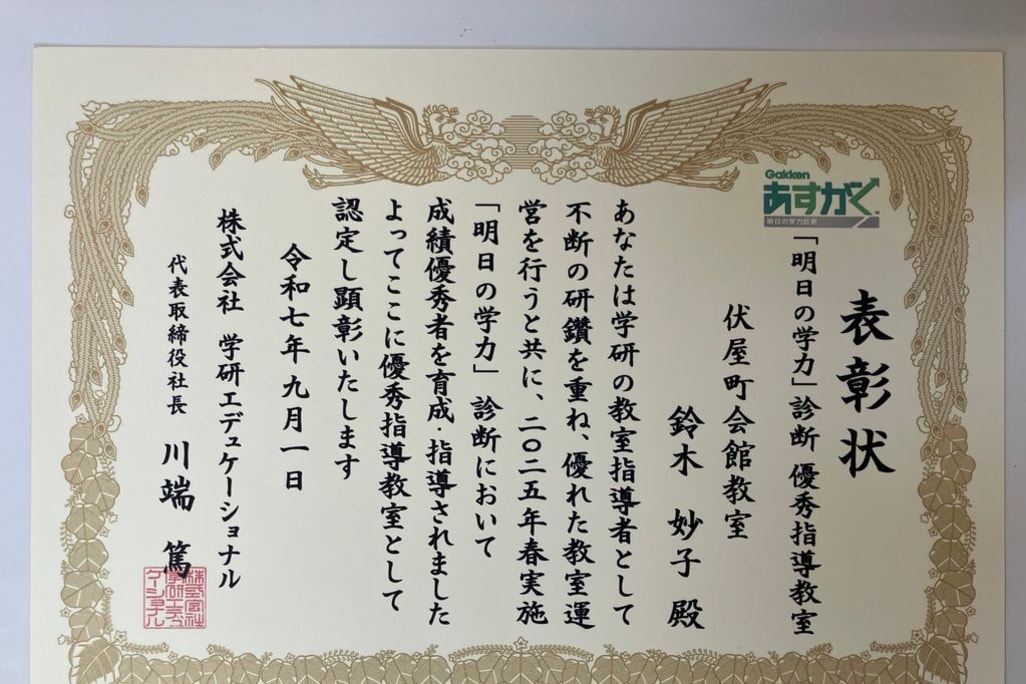 Gakken
あすがく
明日の学力診断
表彰状
「明日の学力」診断 優秀指導教室
伏屋町会館教室
鈴木 妙子 殿
あなたは学研の教室指導者として
不断の研鑽を重ね、優れた教室運
営を行うと共に、二〇二五年春実施
「明日の学力」診断において
成績優秀者を育成・指導されました
よってここに優秀指導教室として
認定し顕彰いたします
令和七年 九月一日
株式会社 学研エデュケーショナル
代表取締役社長 川端 篤
株式会社
学研エデュ
ケーショナル